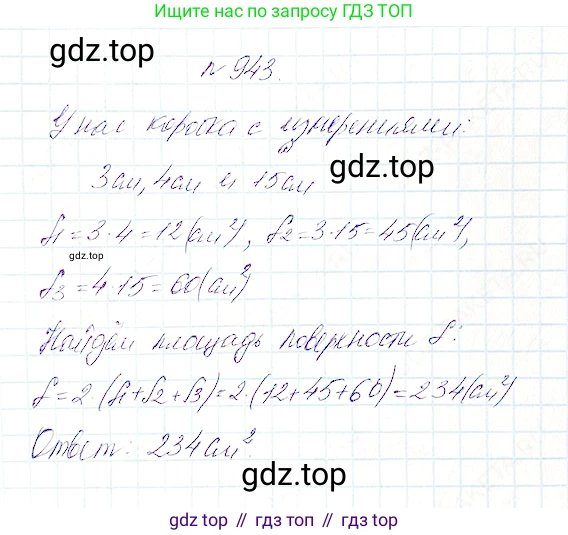 Ищите нас по запросу ГДЗ ТОП
gdz.top
№ 943.
У нас коробка с измерениями:
gdz.top
3см, 4см и 15см
S1 = 3 · 4 = 12 (см²), S2 = 3 · 15 = 45 (см²),
gdz.top
S3 = 4 · 15 = 60 (см²)
Найдём площадь поверхности S:
S = 2 · (S1 + S2 + S3) = 2 · (12 + 45 + 60) = 234 (см²)
Ответ: 234 см².
gdz.top
gdz.top // гдз топ // gdz.top